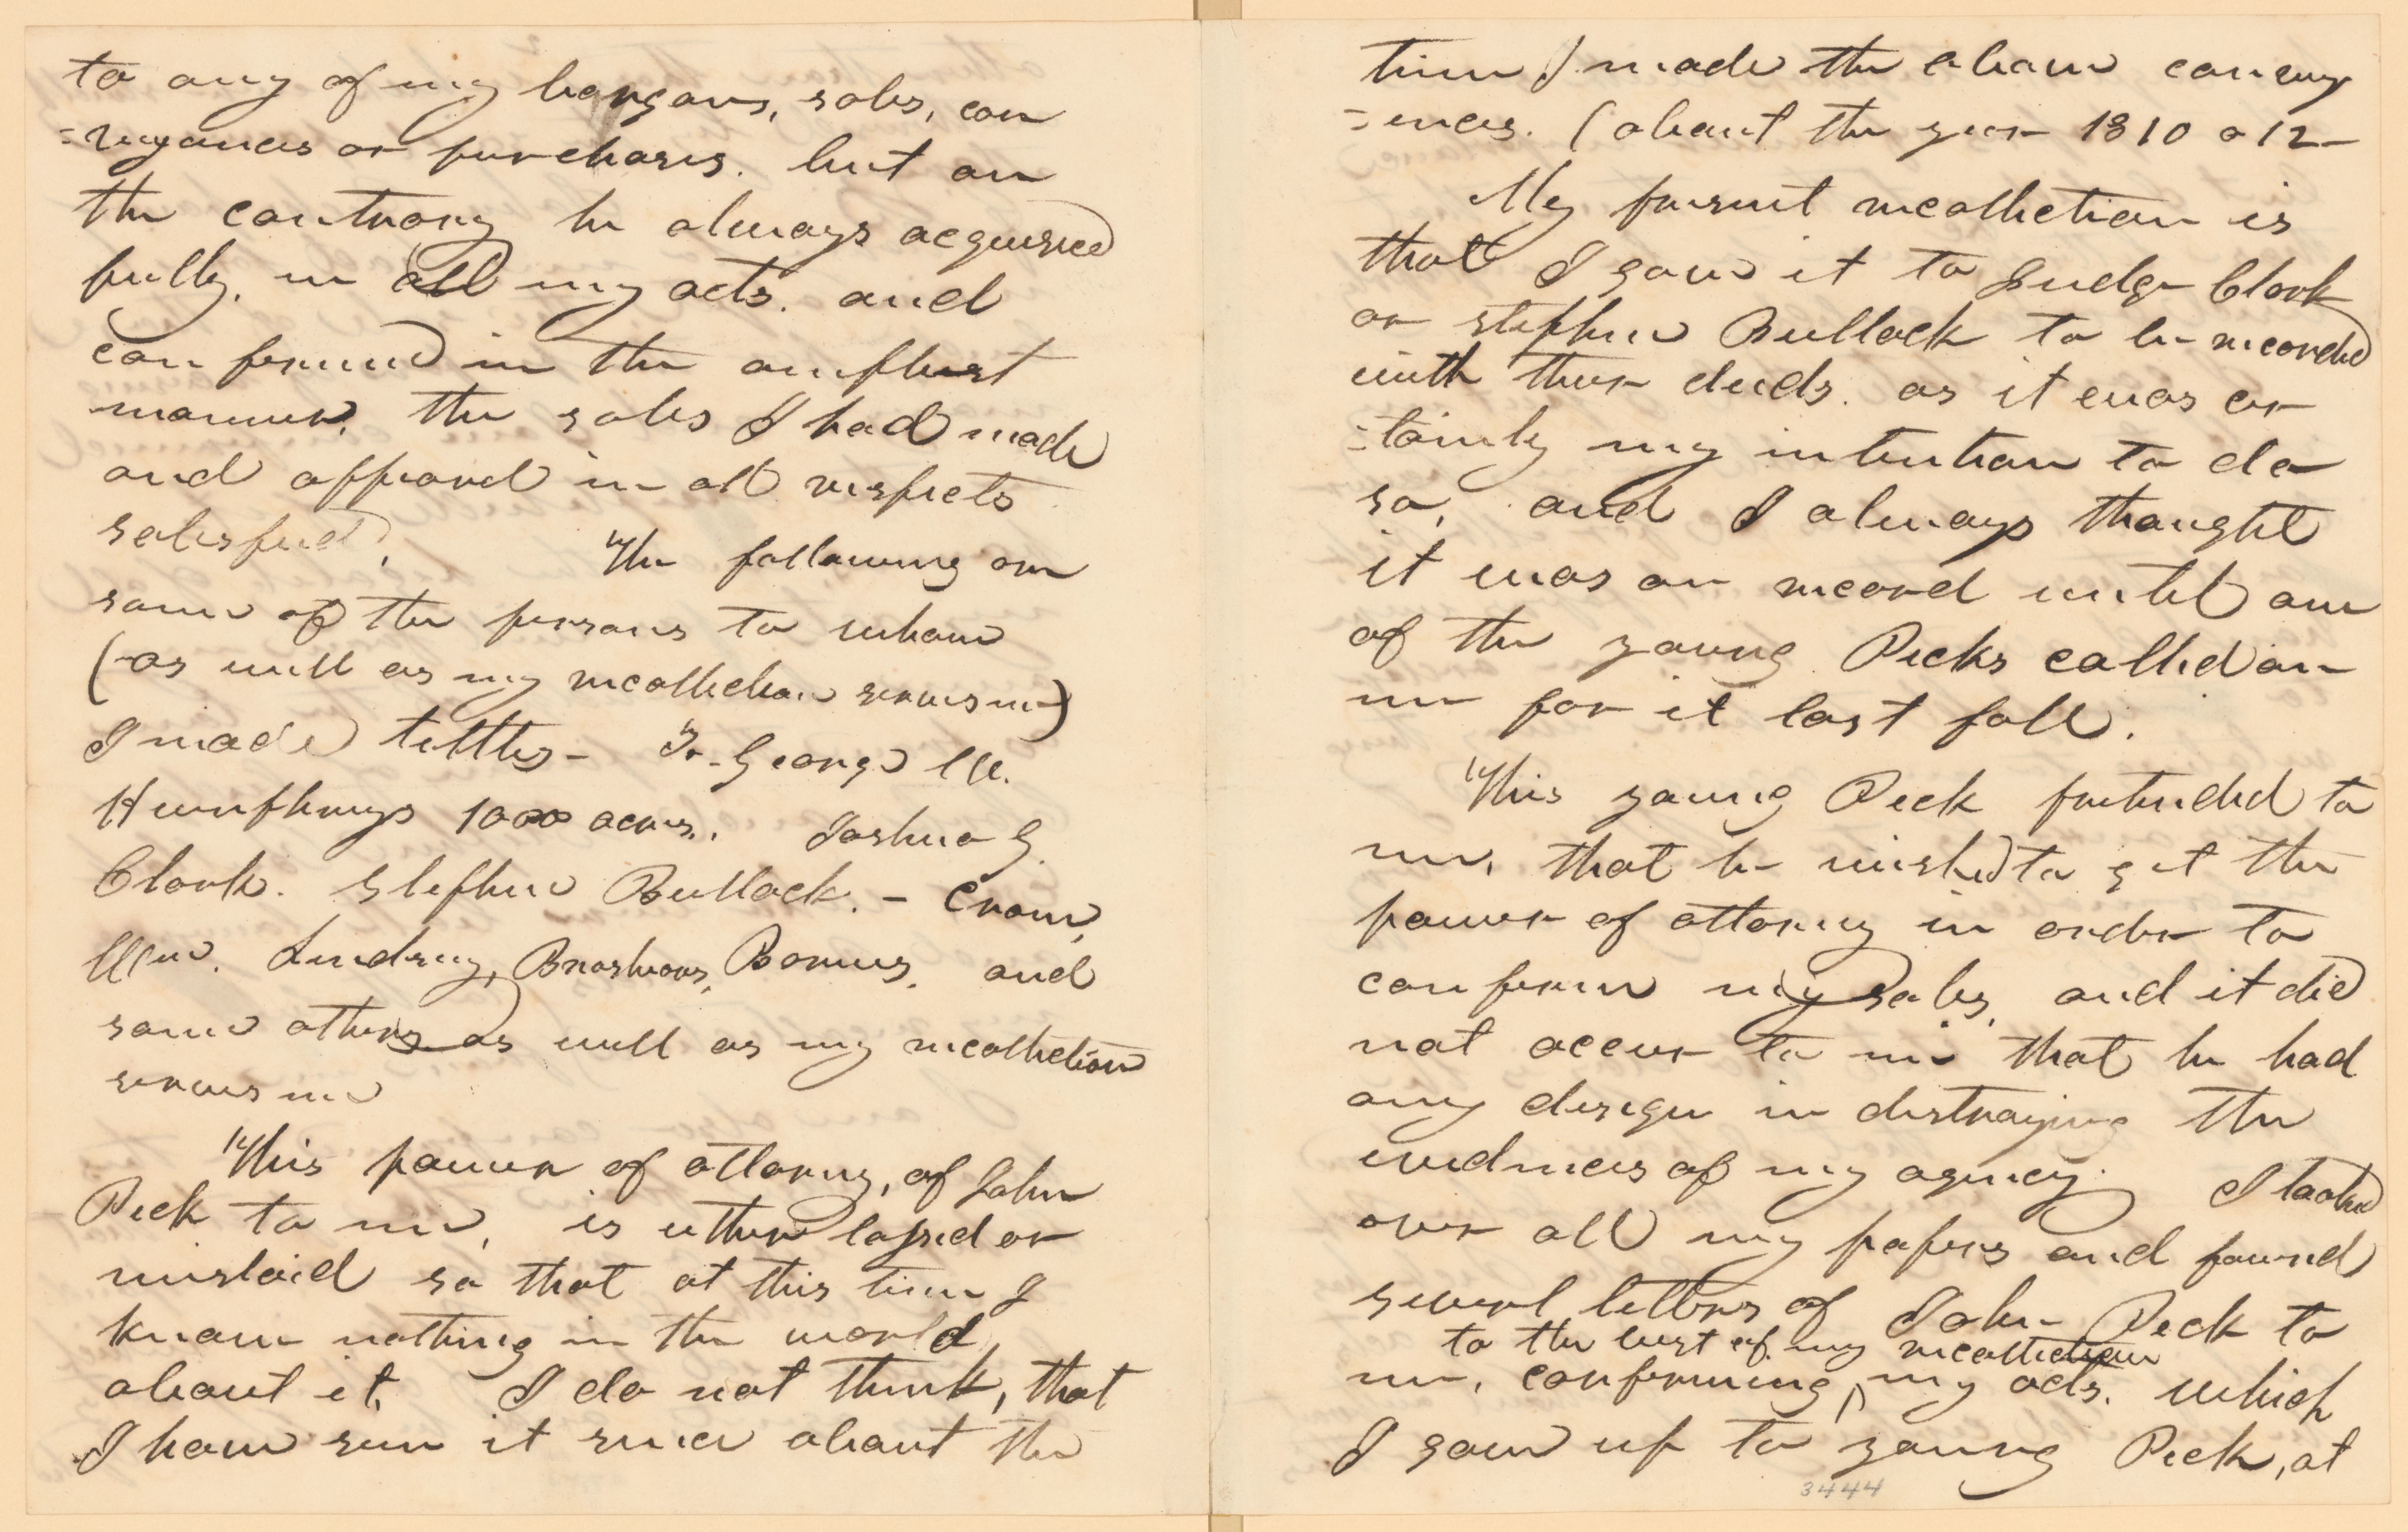 to any of my bargans, sales, con
=veyances or purchases. but on
the contrary he always acquised
fully, in all my acts. and
confermed in the amplest
manner, the sales I had made
and appeared in all respects
satisfied. The following are
some of the persons to whom
(as well as my recollection serves me)
I made tittles- To George W.
Humphreys 1000 acres. Joshua G.
Clark. Stephen Bullock. - Crane,
Lindsey, Brashears, Barnes, and
some others as well as my recollection
serves me
This power of attorny, of John
Peck to me, is either lossed or
mislaid so that at this time I
know nothing in the world
about it. I do not think, that
I have seen it since about the
time I made the above convey
=ences. (about the year 1810 o 12-
My present recollection is
that I gave it to Judge Clark
or Stephen Bullock to be recorded
with their deeds. as it was cer
=tainly my intention to do
so, and I always thought
it was on record until one
of the young Pecks called on
me for it last fall.
This young Peck pretended to
me, that he wished to get the
power of attorney in order to
conferm my sales, and it did
not occur to me that he had
any design in distroying the
evidences of my agency. I looked
over all my papers and found
severl letters of John Peck to
to the best of my recollection
me, conferming my acts. which
I gave up to young Peck, at
3444